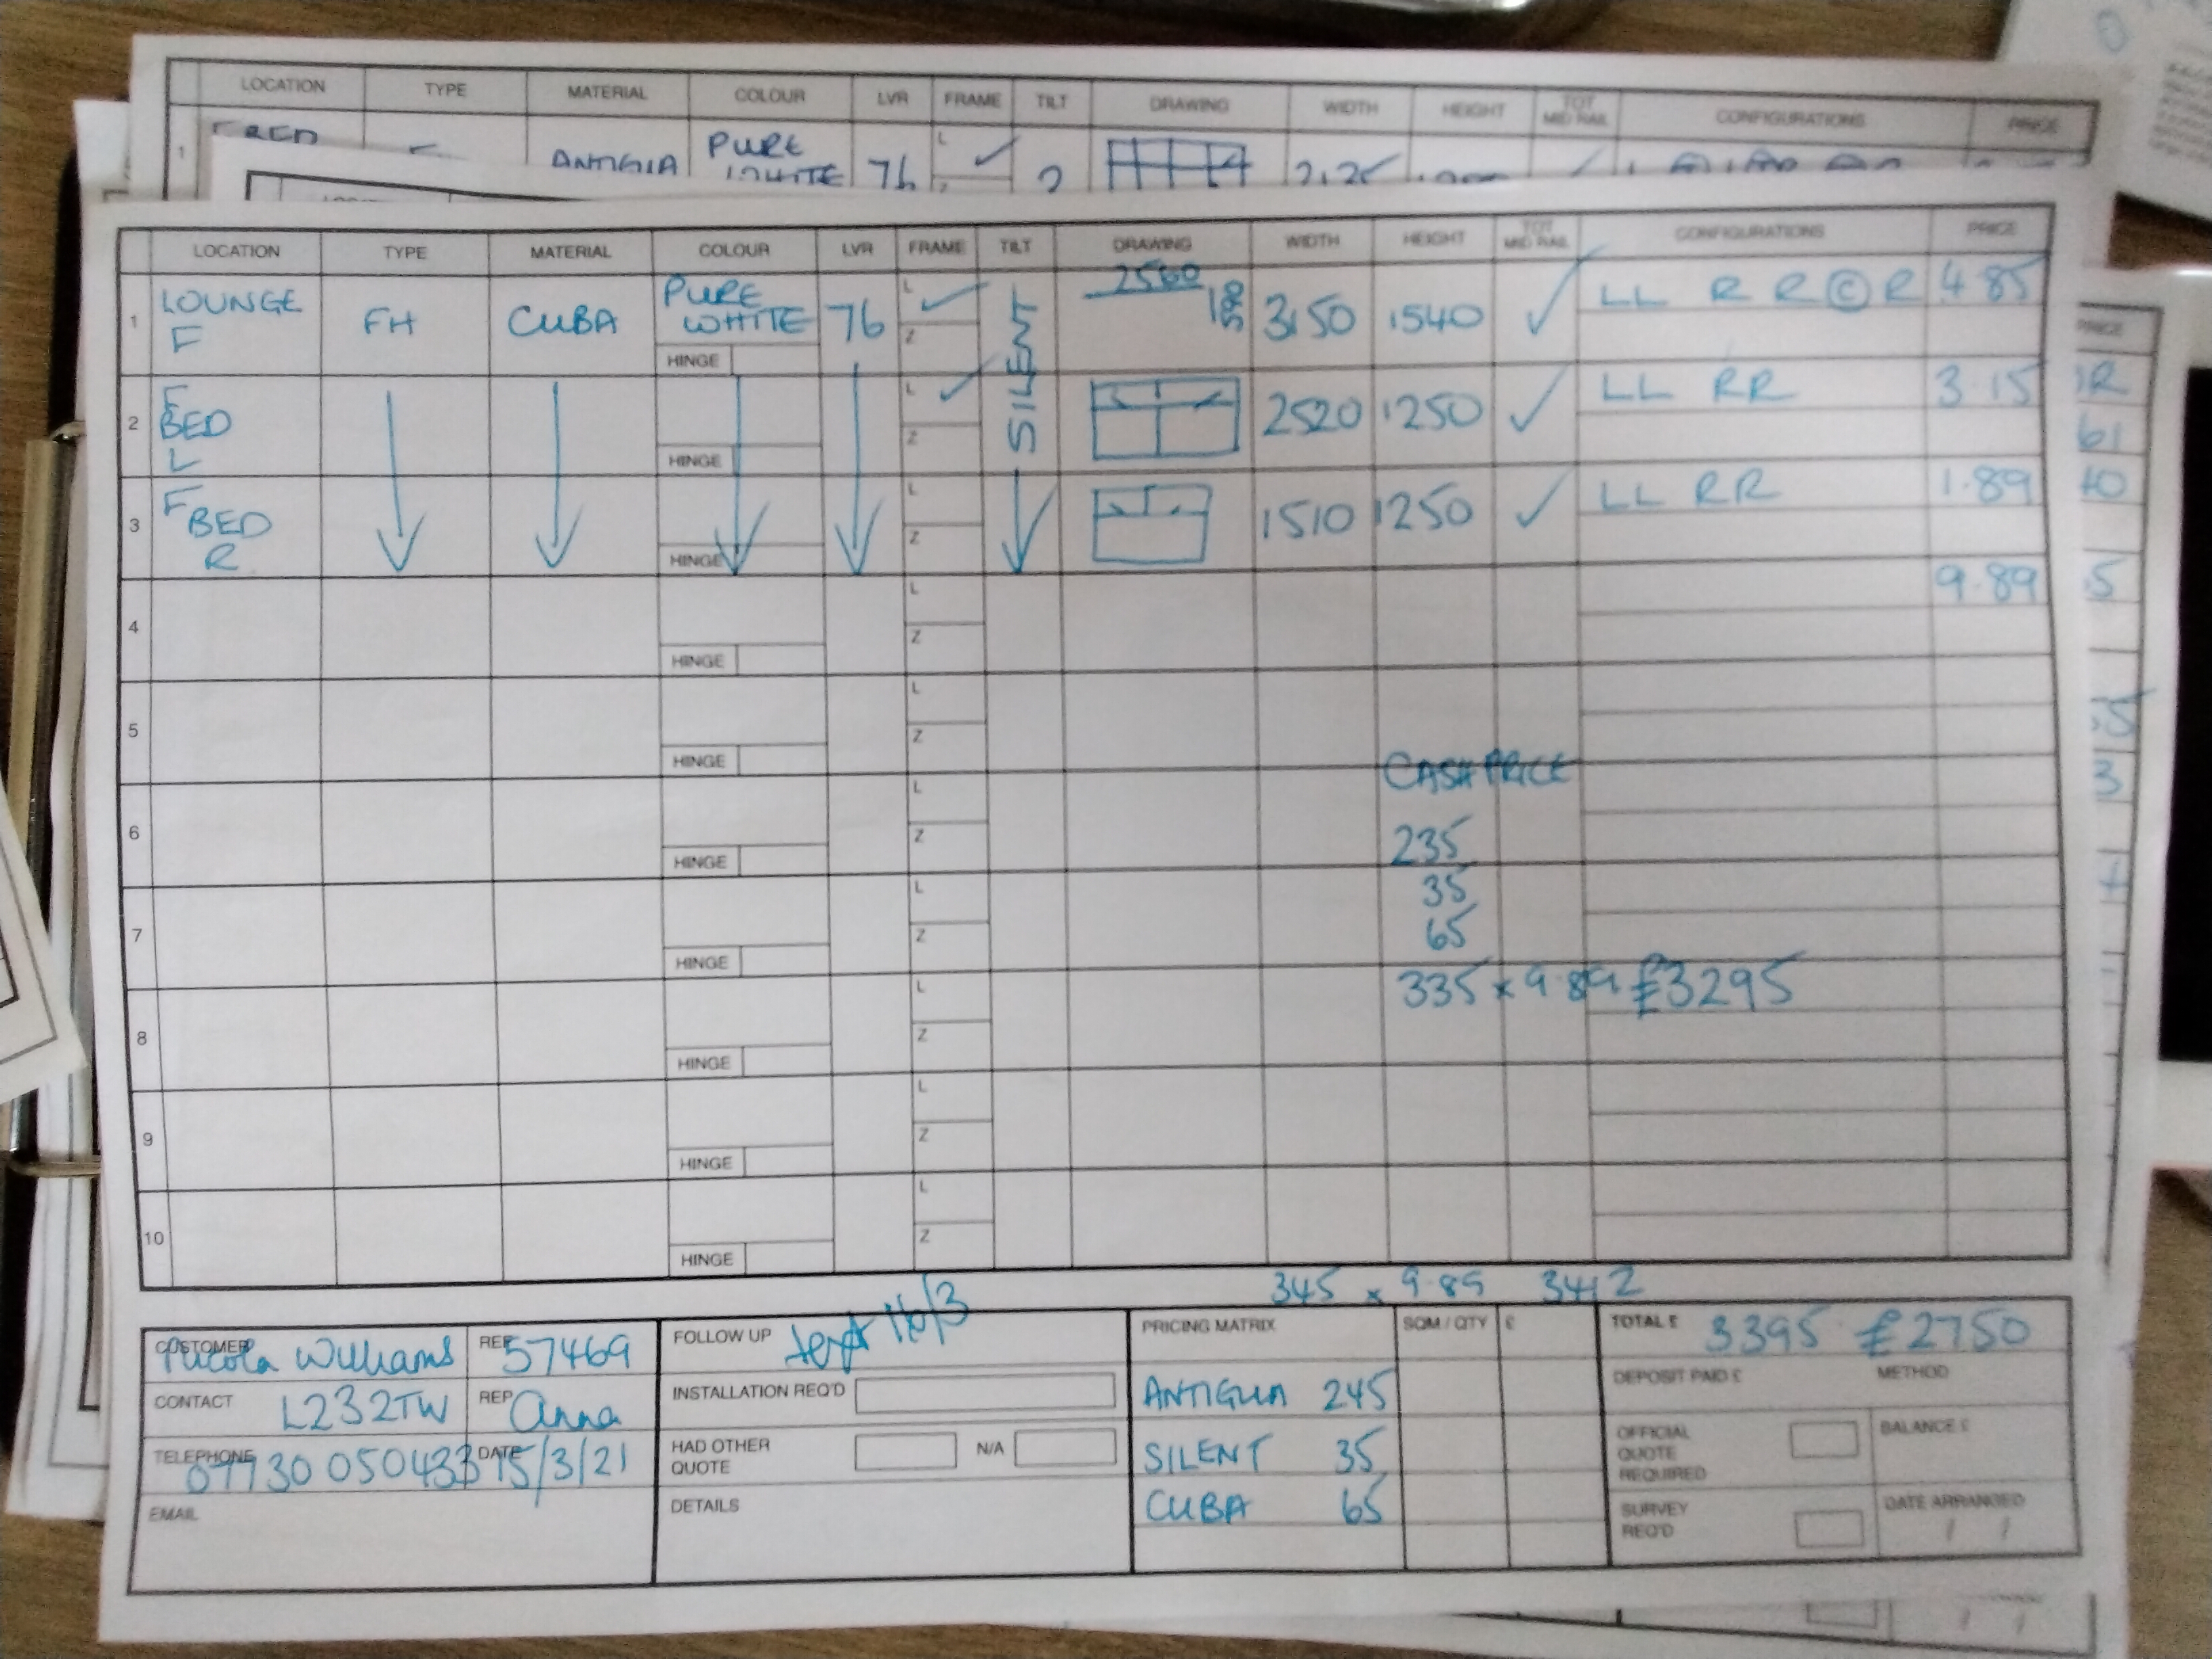 LOCATION TYPE MATERIAL COLOUR LVR FRAME TILT DRAWING WIDTH HEIGHT TOT MID RAIL CONFIGURATIONS PRICE
1 ANTIGUA PURE WHITE 76 L Z
LOCATION TYPE MATERIAL COLOUR LVR FRAME TILT DRAWING WIDTH HEIGHT TOT MID RAIL CONFIGURATIONS PRICE
1 LOUNGE F FH CUBA PURE WHITE 76 L ✓ Z SILENT 2560 590 3150 1540 ✓ LL R R © R 4.85
HINGE
2 F BED L L ✓ Z 2520 1250 ✓ LL RR 3.15
HINGE
3 F BED R L Z 1510 1250 ✓ LL RR 1.89
HINGE
4 L Z 9.89
HINGE
5 L Z
HINGE
CASH PRICE
6 L Z 235
HINGE
35
7 L Z 65
HINGE
335 x 9.89 £3295
8 L Z
HINGE
9 L Z
HINGE
10 L Z
HINGE
345 x 9.89 3412
CUSTOMER Nicola Williams REF 57469
CONTACT L232TW REP Anna
TELEPHONE 07730 050433 DATE 15/3/21
EMAIL
FOLLOW UP 16/3
INSTALLATION REQ'D
HAD OTHER QUOTE N/A
DETAILS
PRICING MATRIX SQM / QTY £
ANTIGUA 245
SILENT 35
CUBA 65
TOTAL £ 3395 £2750
DEPOSIT PAID £ METHOD
OFFICIAL QUOTE REQUIRED BALANCE £
SURVEY REQ'D DATE ARRANGED / /
PRICE